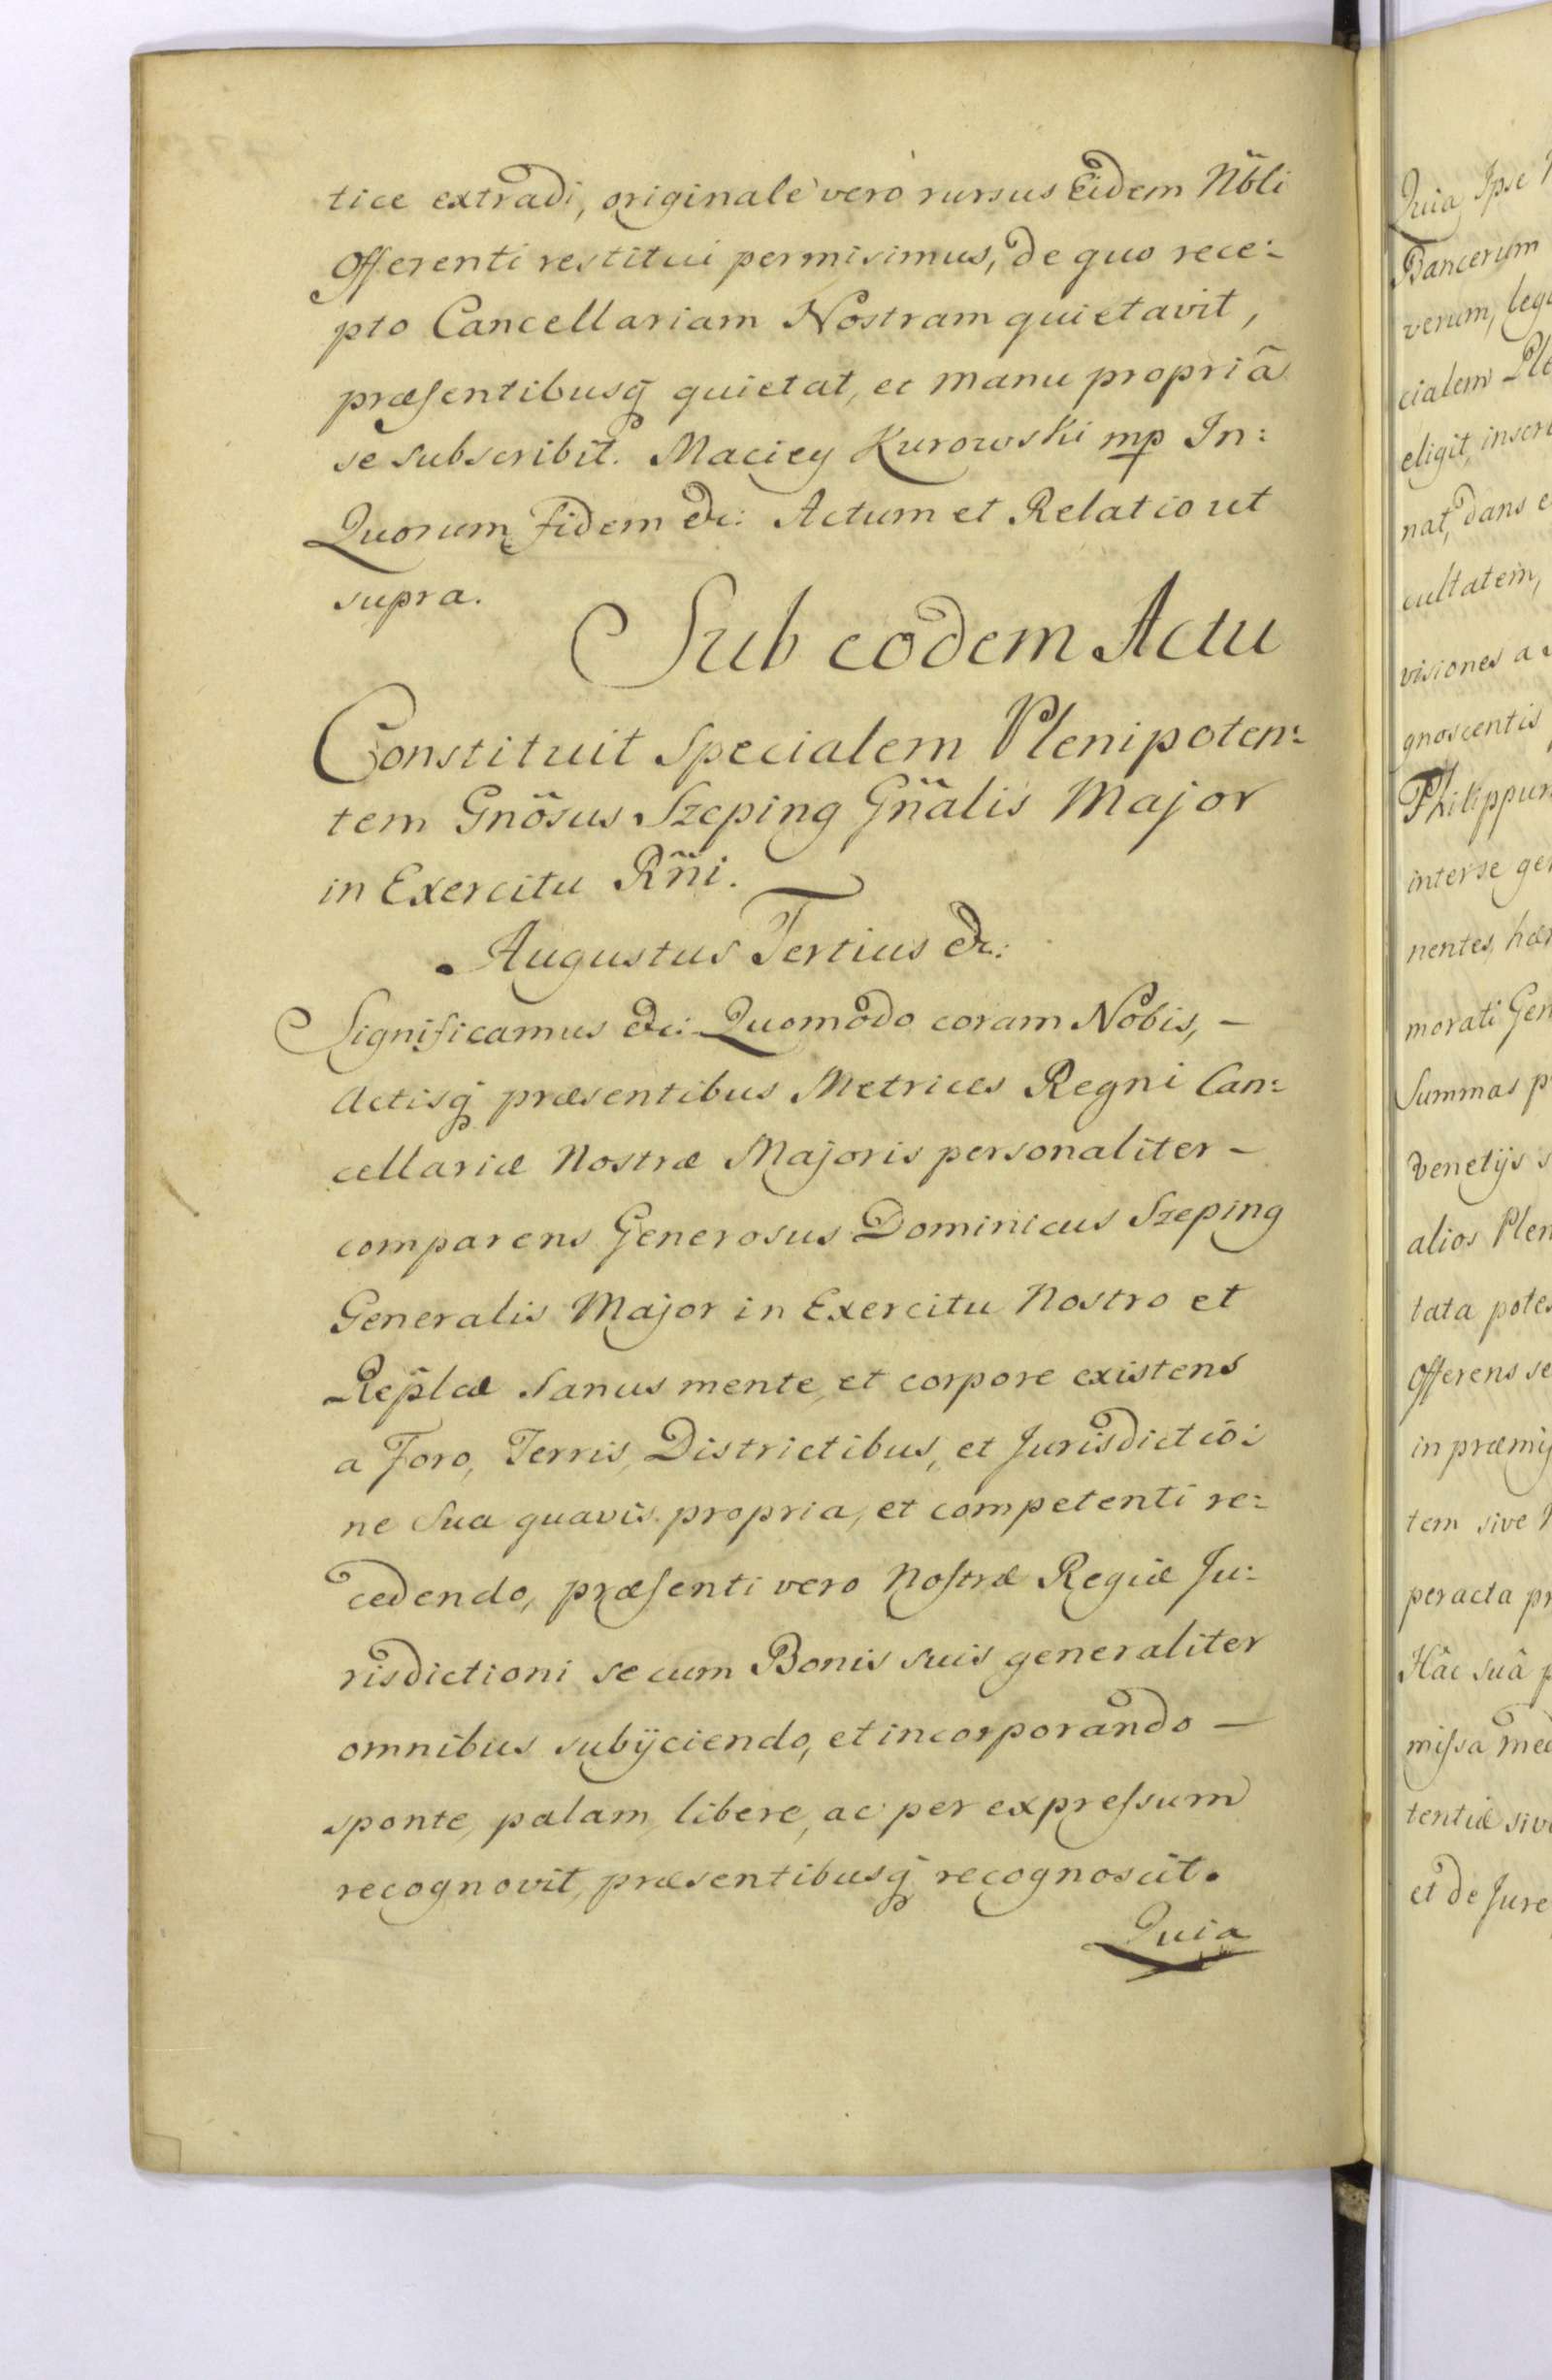 tice extradi, originale vero rursus Eidem Nbli
Offerenti restitui permisimus, de quo rece:
pto Cancellariam Nostram quietavit,
præsentibusq̃ quietat, et manu propriâ
se subscribit. Maciey Kurowski mp In:
Quorum Fidem &c: Actum et Relatio ut
supra.
Sub eodem Actu
Constituit Specialem Plenipoten:
tem Gnõsus Szeping Gñalis Major
in Exercitu Rñi.
Augustus Tertius &c:
Significamus &c: Quomodo coram Nobis, –
Actisq̃ præsentibus Metrices Regni Can:
cellariæ Nostræ Majoris personaliter –
comparens Generosus Dominicus Szeping
Generalis Major in Exercitu Nostro et
Reiplcæ Sanus mente, et corpore existens
a Foro, Terris, Districtibus, et Jurisdictiõ:
ne Sua quavis propria, et competenti re:
cedendo, præsenti vero Nostræ Regiæ Ju:
risdictioni se cum Bonis suis generaliter
omnibus subijciendo, et incorporando –
sponte, palam, libere, ac per expressum
recognovit, præsentibusq̃ recognoscit.
Quia
Quia Ipse
Bancerum
verum, leg
cialem Ple
eligit, inscri
nat, dans e
cultatem,
visiones a
gnoscentis
Philippum
inter se ge
nentes, hær
morati Gen
Summas p
Venetijs s
alios Plen
tata potes
Offerens se
in præmij
tem sive
peracta pr
Hâc suâ p
missa med
tentiæ siv
et de Jure